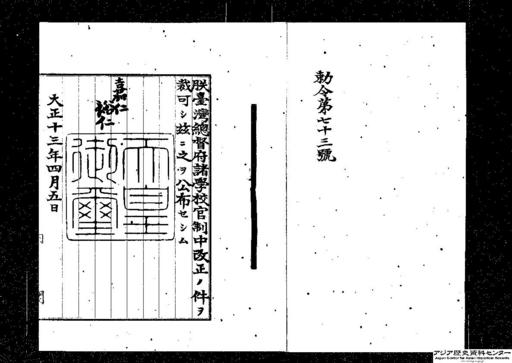 勅令第七十三號
朕臺灣總督府諸學校官制中改正ノ件ヲ
裁可シ玆ニ之ヲ公布セシム
嘉仁
裕仁
天皇
御璽
大正十三年四月五日
アジア歴史資料センター
Japan Center for Asian Historical Records